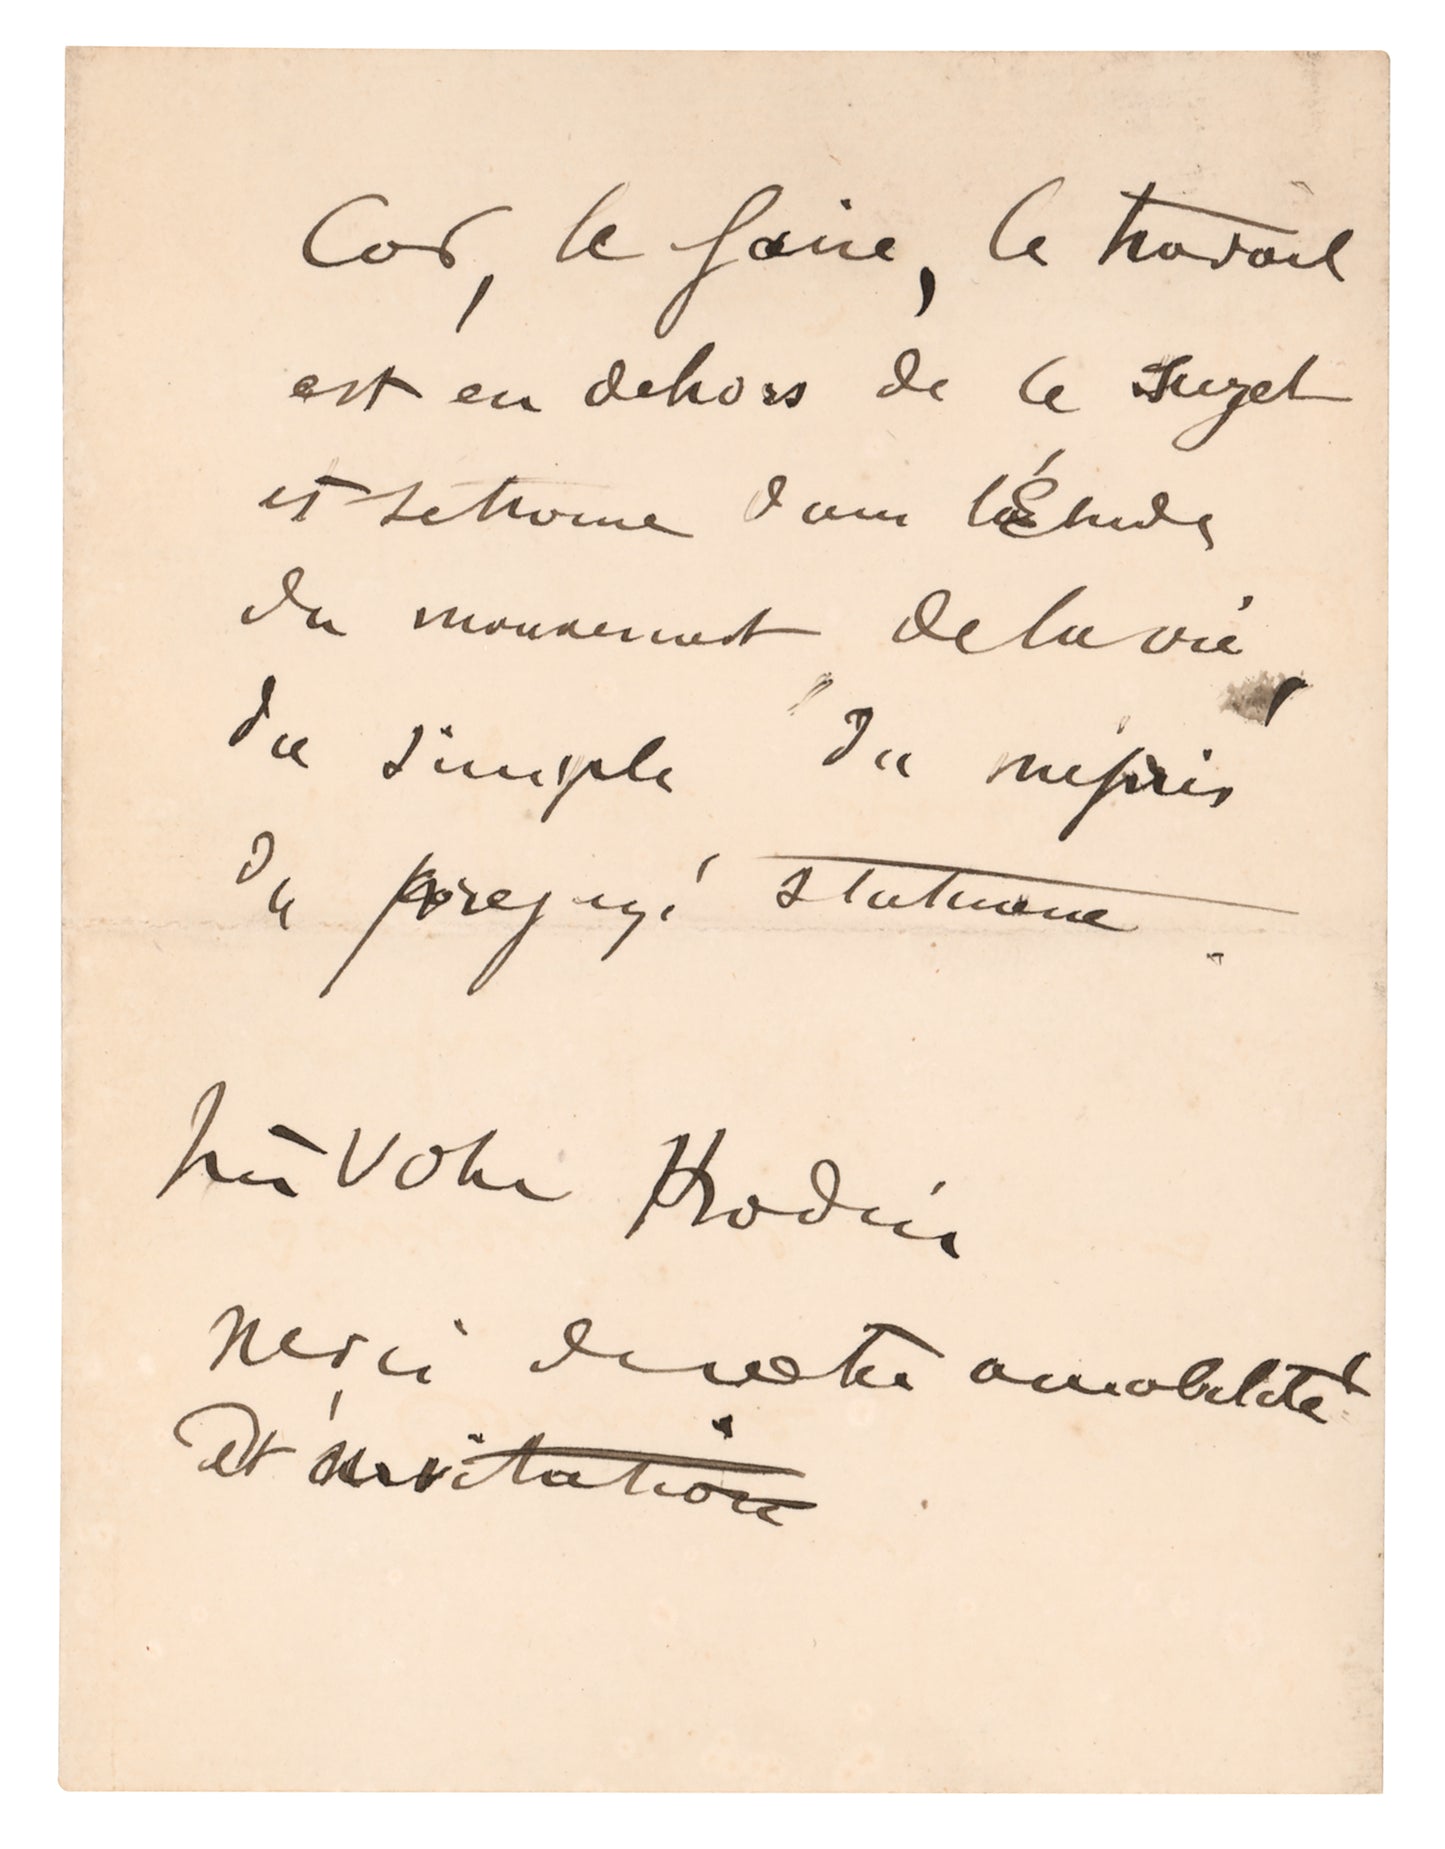 Car, le faire, le travail
est en dehors de le sujet
et se trouve dans l'Étude
du mouvement de la vie,
du simple du mépris
du prejugé statuaire.
Votre Rodin
Merci de votre amabilité
et invitation